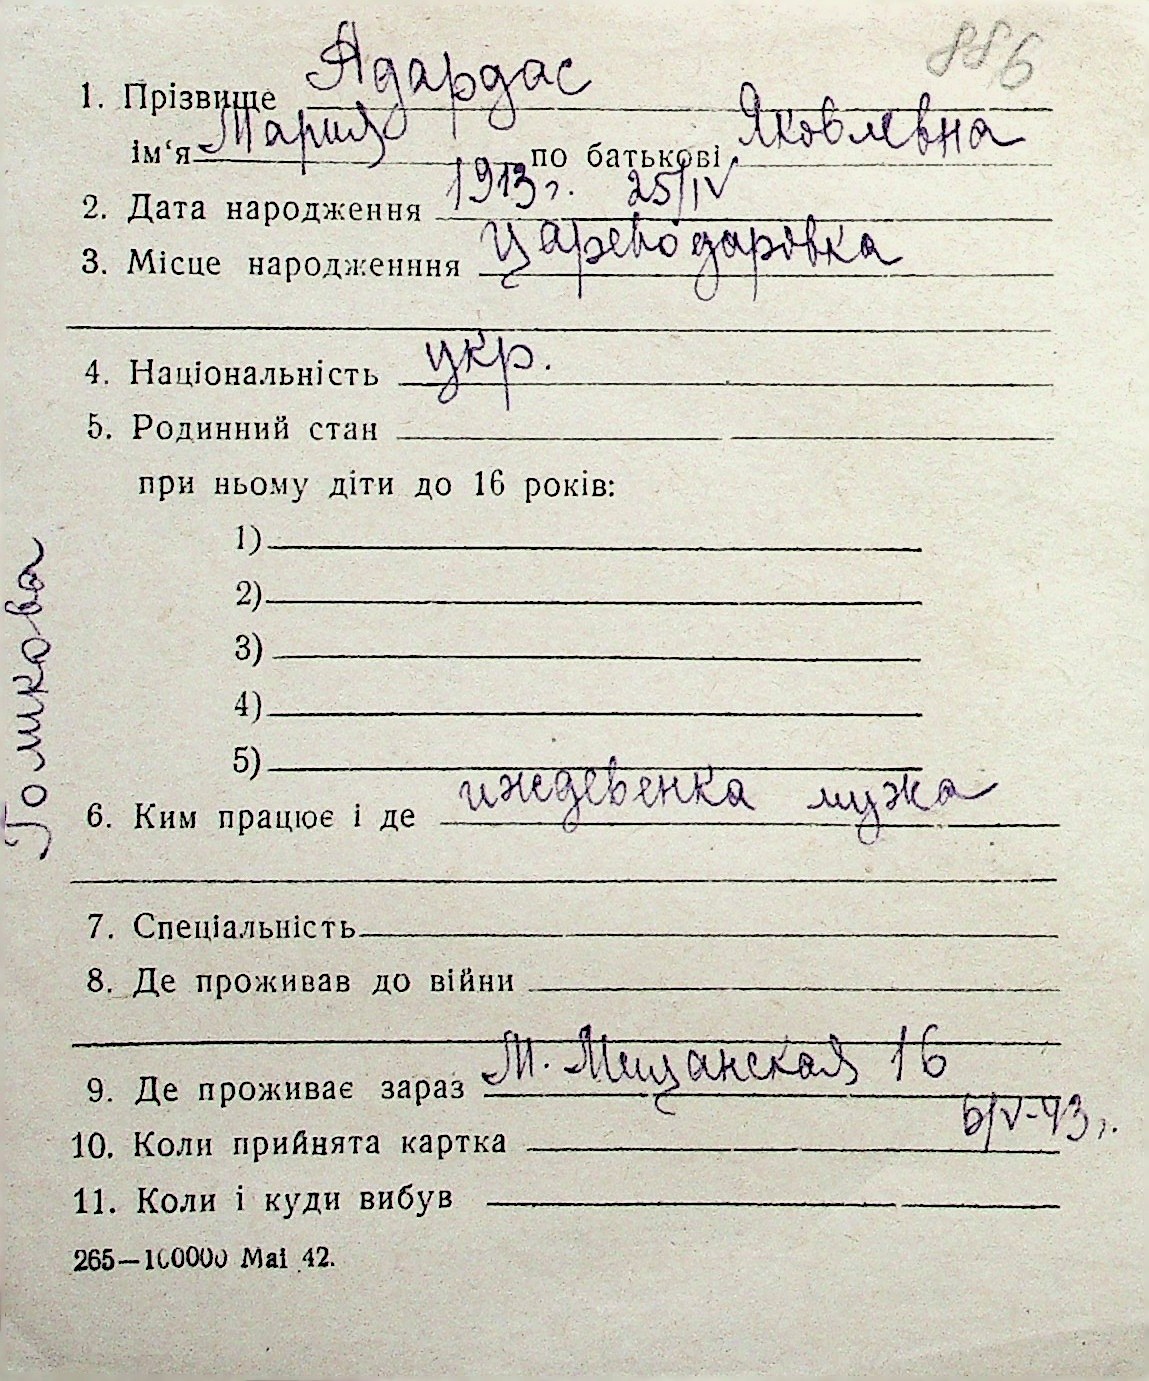 886
1. Прізвище Ядардас
ім‘я Мария по батькові Яковлевна
2. Дата народження 1913 г. 25/IV
3. Місце народженння Цареводаровка
4. Національність укр.
5. Родинний стан
при ньому діти до 16 років:
1)
2)
3)
4)
5)
6. Ким працює і де иждевенка мужа
7. Спеціальність
8. Де проживав до війни
9. Де проживає зараз М. Мещанская 16
10. Коли прийнята картка 6/V-43 г.
11. Коли і куди вибув
265—100000 Mai 42.
Гомкова